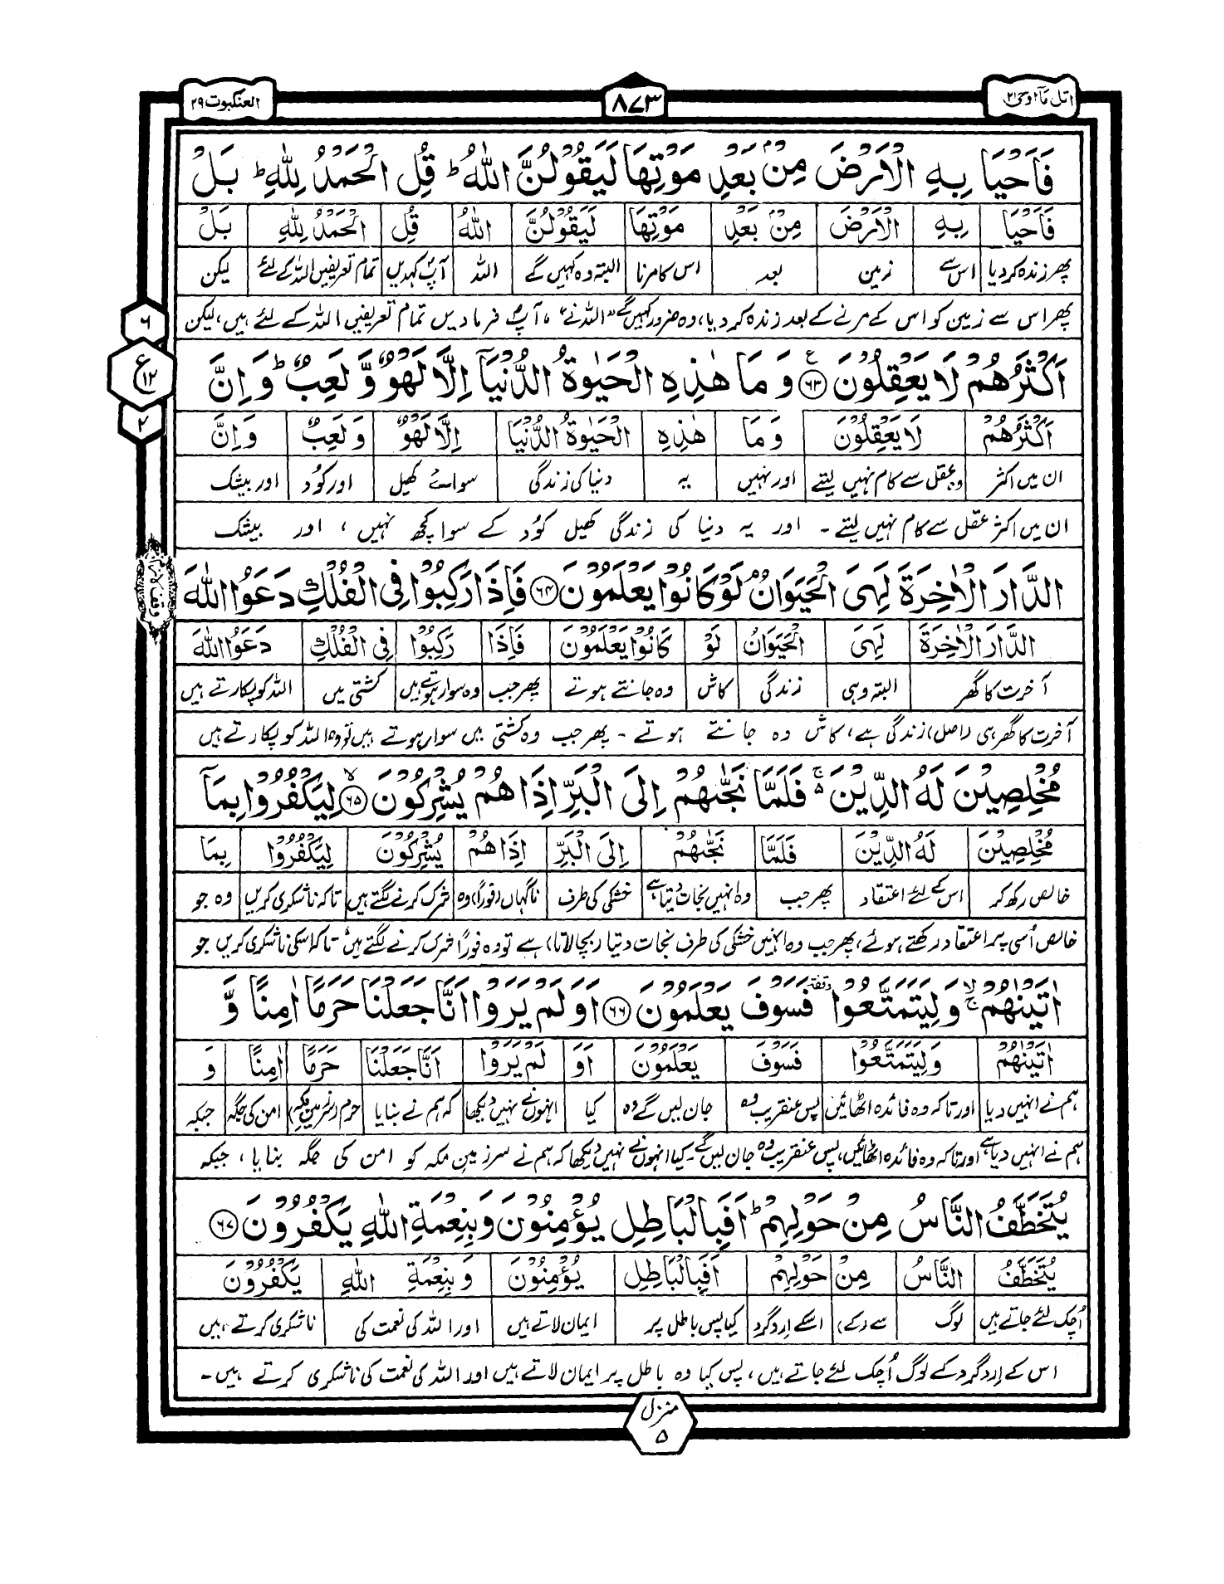 اتل ما اوحی ۲۱
۸۷۳
العنکبوت ۲۹
فَاَحْيَا بِهِ الْاَرْضَ مِنْۢ بَعْدِ مَوْتِهَا لَيَقُوْلُنَّ اللّٰهُ ؕ قُلِ الْحَمْدُ لِلّٰهِ ؕ بَلْ
فَاَحْيَا بِهِ الْاَرْضَ مِنْۢ بَعْدِ مَوْتِهَا لَيَقُوْلُنَّ اللّٰهُ قُلِ الْحَمْدُ لِلّٰهِ بَلْ
پھر زندہ کردیا اس سے زمین بعد اس کا مرنا البتہ وہ کہیں گے اللہ آپؐ کہدیں تمام تعریفیں اللہ کے لئے لیکن
پھر اس سے زمین کو اس کے مرنے کے بعد زندہ کر دیا، وہ ضرور کہیں گے "اللہ نے"، آپؐ فرما دیں تمام تعریفیں اللہ کے لئے ہیں، لیکن
۶
ع
۱۲
۲
اَكْثَرُهُمْ لَا يَعْقِلُوْنَ ۶۳ وَ مَا هٰذِهِ الْحَيٰوةُ الدُّنْيَاۤ اِلَّا لَهْوٌ وَّ لَعِبٌ ؕ وَ اِنَّ
اَكْثَرُهُمْ لَا يَعْقِلُوْنَ وَ مَا هٰذِهِ الْحَيٰوةُ الدُّنْيَا اِلَّا لَهْوٌ وَ لَعِبٌ وَ اِنَّ
ان میں اکثر وہ عقل سے کام نہیں لیتے اور نہیں یہ دنیا کی زندگی سوائے کھیل اور کُود اور بیشک
ان میں اکثر عقل سے کام نہیں لیتے ۔ اور یہ دنیا کی زندگی کھیل کُود کے سوا کچھ نہیں ، اور بیشک
الدَّارَ الْاٰخِرَةَ لَهِیَ الْحَيَوَانُ ۘ لَوْ كَانُوْا يَعْلَمُوْنَ ۶۴ فَاِذَا رَكِبُوْا فِی الْفُلْكِ دَعَوُا اللّٰهَ
الدَّارَ الْاٰخِرَةَ لَهِیَ الْحَيَوَانُ لَوْ كَانُوْا يَعْلَمُوْنَ فَاِذَا رَكِبُوْا فِی الْفُلْكِ دَعَوُا اللّٰهَ
آخرت کا گھر البتہ وہی زندگی کاش وہ جانتے ہوتے پھر جب وہ سوار ہوتے ہیں کشتی میں اللہ کو پکارتے ہیں
آخرت کا گھر ہی (اصل) زندگی ہے، کاش وہ جانتے ہوتے ۔ پھر جب وہ کشتی میں سوار ہوتے ہیں تو وہ اللہ کو پکارتے ہیں
مُخْلِصِيْنَ لَهُ الدِّيْنَ ۚ فَلَمَّا نَجّٰىهُمْ اِلَى الْبَرِّ اِذَا هُمْ يُشْرِكُوْنَ ۙ ۶۵ لِيَكْفُرُوْا بِمَاۤ
مُخْلِصِيْنَ لَهُ الدِّيْنَ فَلَمَّا نَجّٰىهُمْ اِلَى الْبَرِّ اِذَا هُمْ يُشْرِكُوْنَ لِيَكْفُرُوْا بِمَا
خالص رکھ کر اس کے لئے اعتقاد پھر جب وہ انہیں نجات دیتا ہے خشکی کی طرف ناگہاں (فوراً) وہ شرک کرنے لگتے ہیں تاکہ ناشکری کریں وہ جو
خالص اُسی پر اعتقاد رکھتے ہوئے، پھر جب وہ انہیں خشکی کی طرف نجات دیتا (بچا لاتا) ہے تو وہ فوراً شرک کرنے لگتے ہیں، تاکہ اسکی ناشکری کریں جو
اٰتَيْنٰهُمْ ۙۚ وَ لِيَتَمَتَّعُوْا ٝ فَسَوْفَ يَعْلَمُوْنَ ۶۶ اَوَ لَمْ يَرَوْا اَنَّا جَعَلْنَا حَرَمًا اٰمِنًا وَّ
اٰتَيْنٰهُمْ وَ لِيَتَمَتَّعُوْا فَسَوْفَ يَعْلَمُوْنَ اَوَ لَمْ يَرَوْا اَنَّا جَعَلْنَا حَرَمًا اٰمِنًا وَ
ہم نے انہیں دیا اور تاکہ وہ فائدہ اٹھائیں پس عنقریب وہ جان لیں گے وہ کیا انہوں نے نہیں دیکھا کہ ہم نے بنایا حرم (سرزمینِ مکہ) امن کی جگہ جبکہ
ہم نے انہیں دیا ہے اور تاکہ وہ فائدہ اٹھائیں، پس عنقریب وہ جان لیں گے۔ کیا انہوں نے نہیں دیکھا کہ ہم نے سرزمین مکہ کو امن کی جگہ بنایا ، جبکہ
يُتَخَطَّفُ النَّاسُ مِنْ حَوْلِهِمْ ؕ اَفَبِالْبَاطِلِ يُؤْمِنُوْنَ وَ بِنِعْمَةِ اللّٰهِ يَكْفُرُوْنَ ۶۷
يُتَخَطَّفُ النَّاسُ مِنْ حَوْلِهِمْ اَفَبِالْبَاطِلِ يُؤْمِنُوْنَ وَ بِنِعْمَةِ اللّٰهِ يَكْفُرُوْنَ
اُچک لئے جاتے ہیں لوگ سے (کے) اسکے اردگرد کیا پس باطل پر ایمان لاتے ہیں اور اللہ کی نعمت کی ناشکری کرتے ہیں
اس کے اردگرد کے لوگ اُچک لئے جاتے ہیں، پس کیا وہ باطل پر ایمان لاتے ہیں اور اللہ کی نعمت کی ناشکری کرتے ہیں ۔
منزل
۵